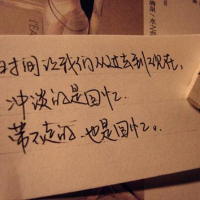 时间让我们从过去到现在,
冲淡的是回忆.
带不走的.也是回忆。